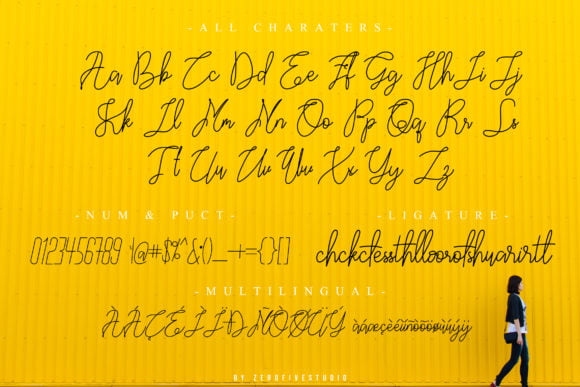 -ALL CHARATERS-
Aa Bb Cc Dd Ee Ff Gg Hh Ii Jj
Kk Ll Mm Nn Oo Pp Qq Rr Ss
Tt Uu Vv Ww Xx Yy Zz
-NUM & PUCT-
0123456789 !@#$%^&*()_-+={}[]
-LIGATURE-
chckctessthlloorotshuarirtt
-MULTILINGUAL-
BY ZEROFIVESTUDIO